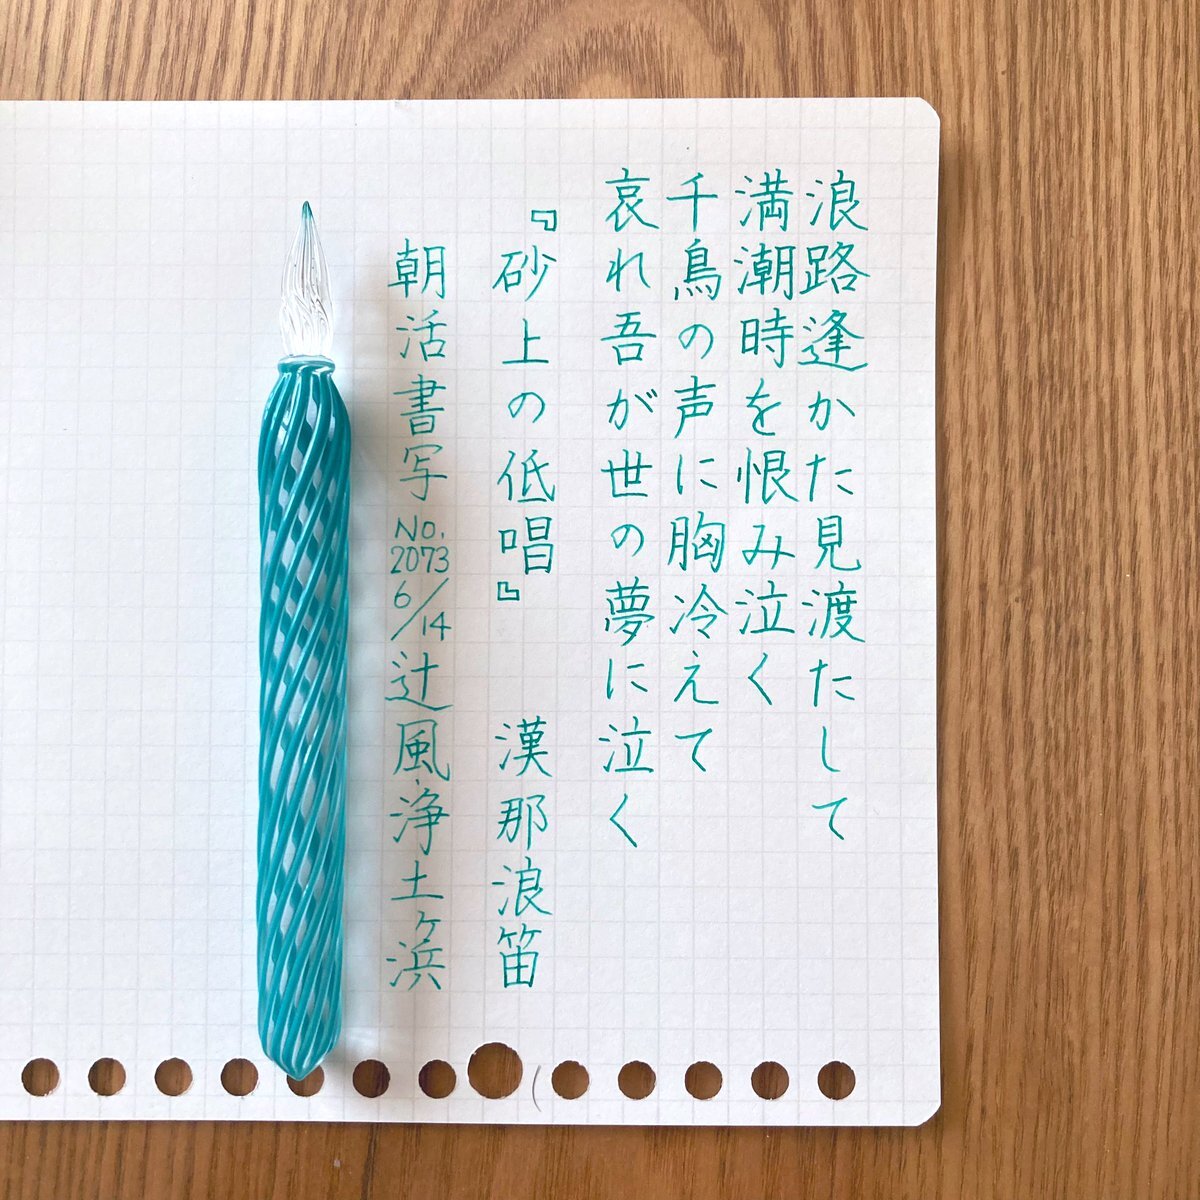 浪路逢かた見渡たして
満潮時を恨み泣く
千鳥の声に胸冷えて
哀れ吾が世の夢に泣く
『砂上の低唱』 漢那浪笛
朝活書写 No.2073 6/14 辻風、浄土ヶ浜